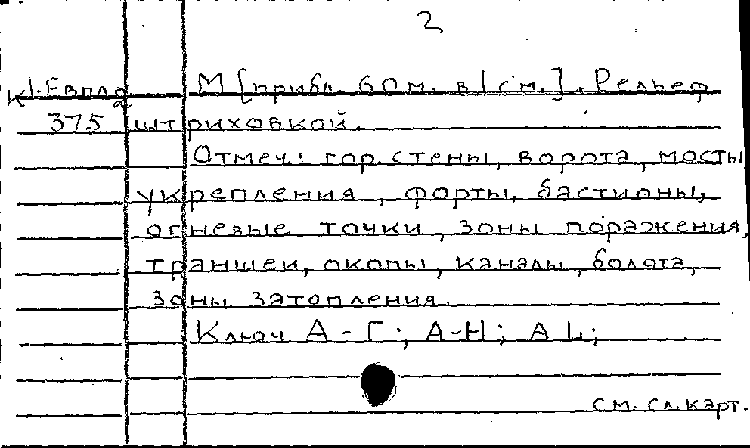 2
К1. Европа М [прибл. 60м. в 1 см.]. Рельеф
375 штриховкой.
Отмеч: гор. стены, ворота, мосты
укрепления, форты, бастионы,
огневые точки, зоны поражения,
траншеи, окопы, каналы, болота,
зоны затопления.
Ключ А-Г; А-Н; А L;
см. сл. карт.